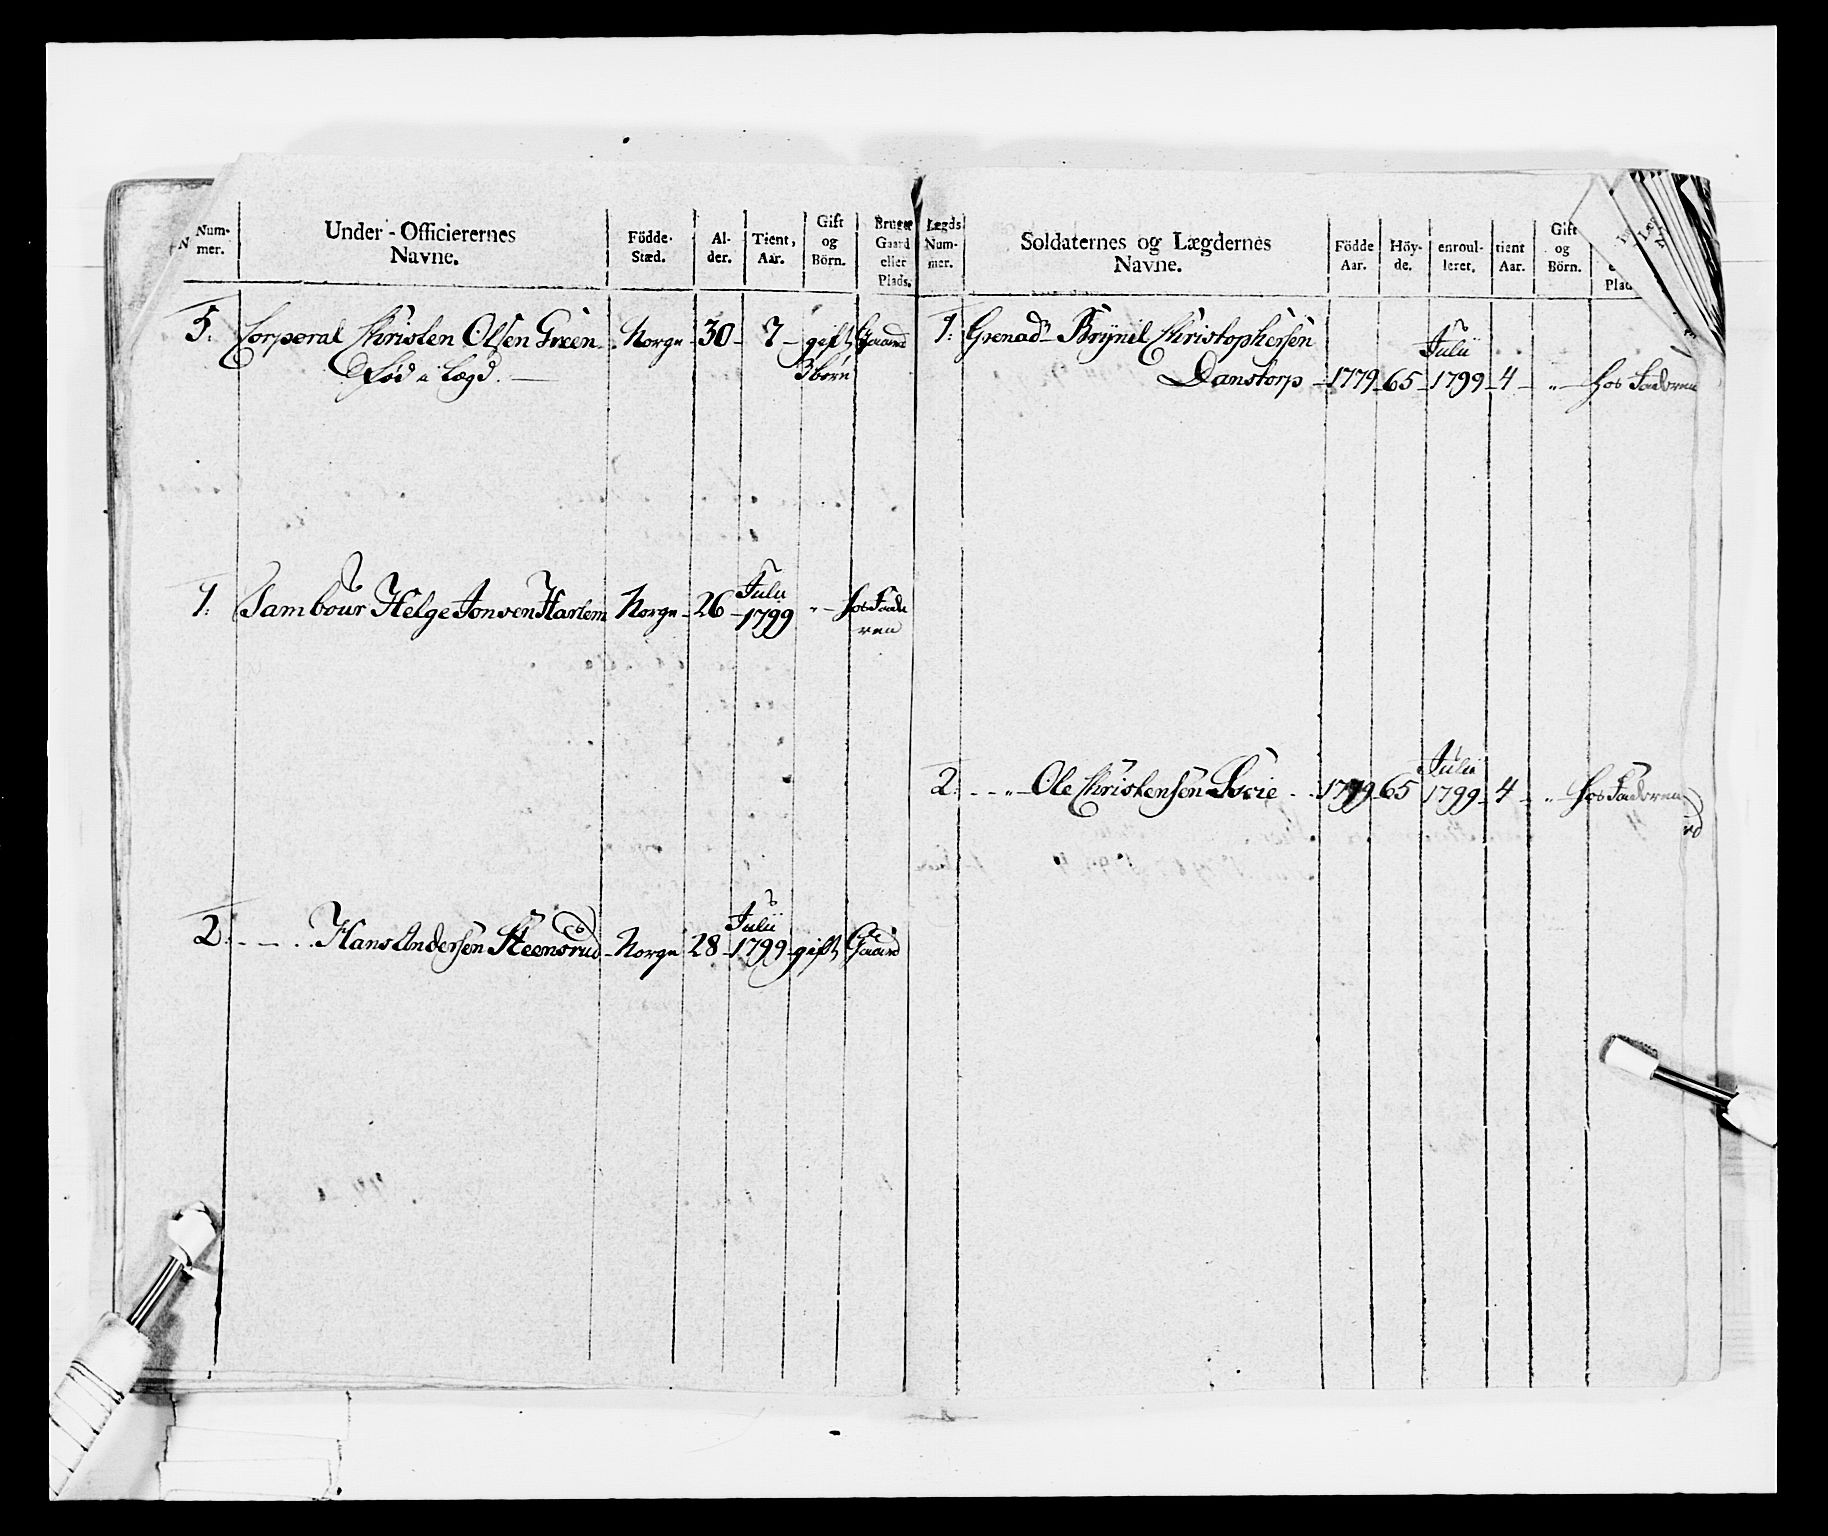 Num-mer. Under-Officierernes Navne. Födde-Stæd. Al-der. Tient, Aar. Gift og Börn. Bruger Gaard eller Plads.
5: Corporal Christen Olsen Green Norge 30 7 gift Gaard
Fød i Lægd. 3 børn
Julii
1: Tambour Helge Jonsen Harlem Norge 26 1799 " hos Fade
ren
Julii
2: Hans Andersen Steensrud Norge 28 1799 gift Gaard
Lægds Num-mer. Soldaternes og Lægdernes Navne. Födde Aar. Höy-de. enroul-leret. tient Aar. Gift og Börn. Plad
1: Grenadr Brynil Christophersen Julii
Danstorp 1779 65 1799 4 " hos Faderen
Julii
2: " Ole Christensen 1779 65 1799 4 " hos Faderen